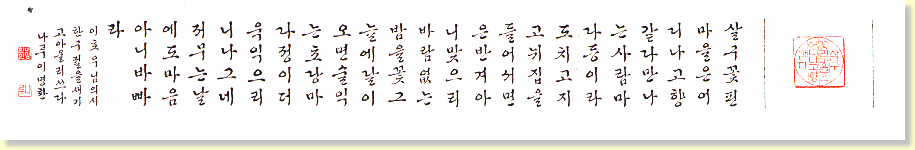 살구꽃핀
마을은어
디나고향
같다만나
는사람마
다등이라
도치고지
고뉘집을
들어서면
은반겨아
니맞으리
바람없는
밤을꽃그
늘에달이
오면술익
는초당마
다정이더
욱익으리
니나그네
저무는날
에도마음
아니바빠
라
이호우님의시
한구절을새기
고아울러쓰다
나루이명환